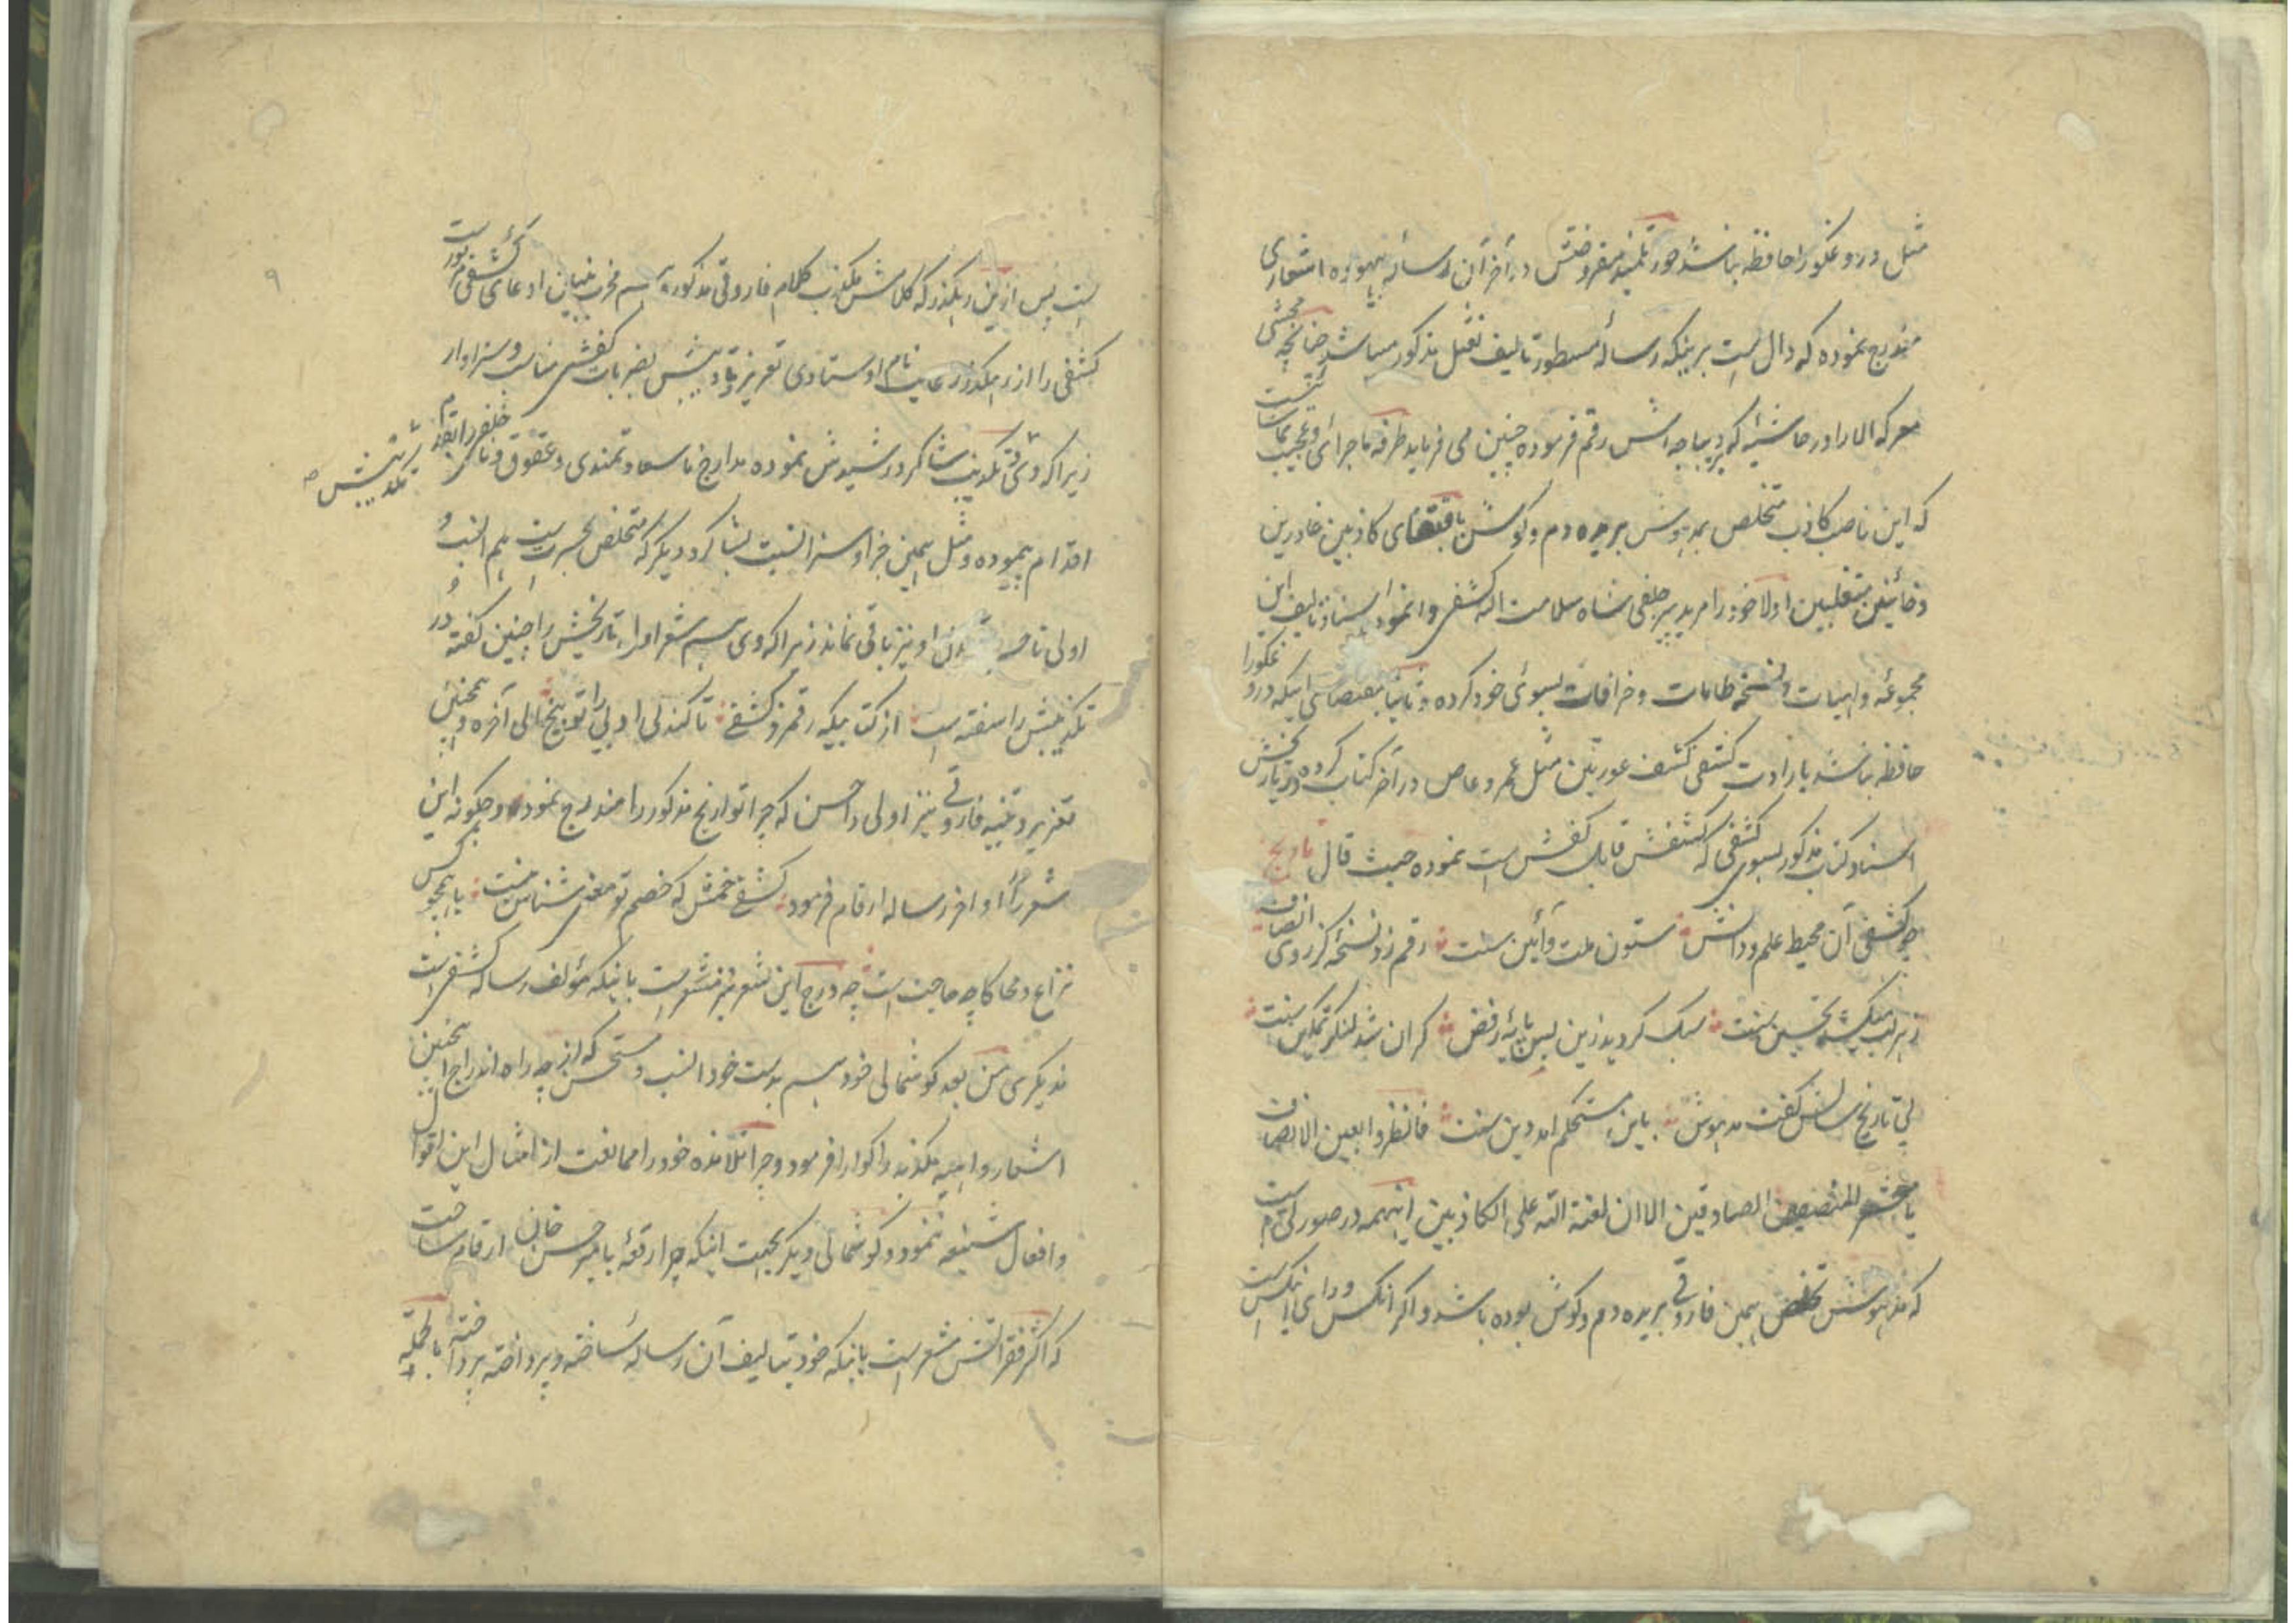 مثل دروغگو را حافظه نباشد خود تلمیذ مفروضش در آخر آن رساله بیهوده اشعاری
مندرج نموده که دال است برینکه رسالهٔ مسطور تالیف نغیل مذکور میباشد چنانچه محشی
معرکه الارا در حاشیه که بر دیباجه‌اش رقم فرموده چنین می فرماید طرفه ماجرائی و عجیب تماشائیست
که این ناصب کاذب متخلص بمدهوش بریده دم و گوش باقتفای کاذبین غادرین
و خائنین متغلبین اولا خود را مرید پیر خلفی شاه سلامت الله کشفی وانموده اسناد تالیف این
مجموعهٔ واهیات و نسخه طامات و خرافات بسوی خود کرده و ثانیا بمقتضای اینکه دروغگو را
حافظه نباشد بارادت کشفی کشف عورتین مثل عمرو عاص در آخر کتاب کرده در تاریخش
اسناد کتاب مذکور بسوی کشفی که کشفش قابل کفش است نموده حیث قال تاریخ
چو کشفی آن محیط علم و دانش ستون ملت و آئین سنت رقم زد نسخهٔ کز روی انصاف
زهر لب میکشد تحسین سنت سبک گردید زین پس پایهٔ رفض گران شد لنگر تمکین سنت
پی تاریخ سالش گفت مدهوش باین مستحکم امد دین سنت فانظروا بعین الانصاف
یا معشر المنصفین الصادقین الا ان لعنة الله علی الکاذبین اینهمه در صورتی است
که مدهوش تخلص همین فاروقی بریده دم و گوش بوده باشد و اگر انکس ورای اینکس است
۹
پس ازین رهگذر که کلامش مکذب کلام فاروقی مذکور و هم مخرب بنیان ادعای کشفی مزبور است
کشفی را از رهگذر رعایت نام اوستادی تعزیر و تادیبش بضربات کفش مناسب و سزاوار
زیرا که وی بتکذیب شاگرد رشیدش نموده مدارج ناسعادتمندی و عقوق و ناخلفی را بقدم
تکذیبش
اقدام پیموده و مثل همین جزا و سزا نسبت بشاگرد دیگر که متخلص بحسرت است هم انسب و
اولی تا حسرت او نیز باقی نماند زیرا که وی هم شعر اول تاریخش را چنین گفته و در
تکذیبش را سفته است از کتابیکه رقم زد کشفی تا کند لی او بی را توبیخ الی آخره و همچنین
تعزیر و تنبیه فاروقی نیز اولی و احسن که چرا تواریخ مذکور را مندرج نموده و چگونه این
شعر را در اواخر رساله ارقام فرموده کشفی خمش که خصم تو معنی شناس نیست با همچو کس
نزاع و محاکا چه حاجت است چه درج این شعر نیز مشعر است باینکه مؤلف رساله کشفی است
نه دیگری من بعد گوشمالی خود هم بدست خود انسب و مستحسن که از چه راه اندراج همچنین
اشعار واهیه مکذبه را گوارا فرمود و چرا تلامذه خود را ممانعت از امثال این اقوال
و افعال شنیعه ننمود و گوشمالی دیگر بجهت اینکه چرا رقعهٔ با میر حسن خان ارقام ساخت
که اکثر فقراتش مشعر است باینکه خود بتالیف آن رساله ساخته و پرداخته پرداخته بالجمله